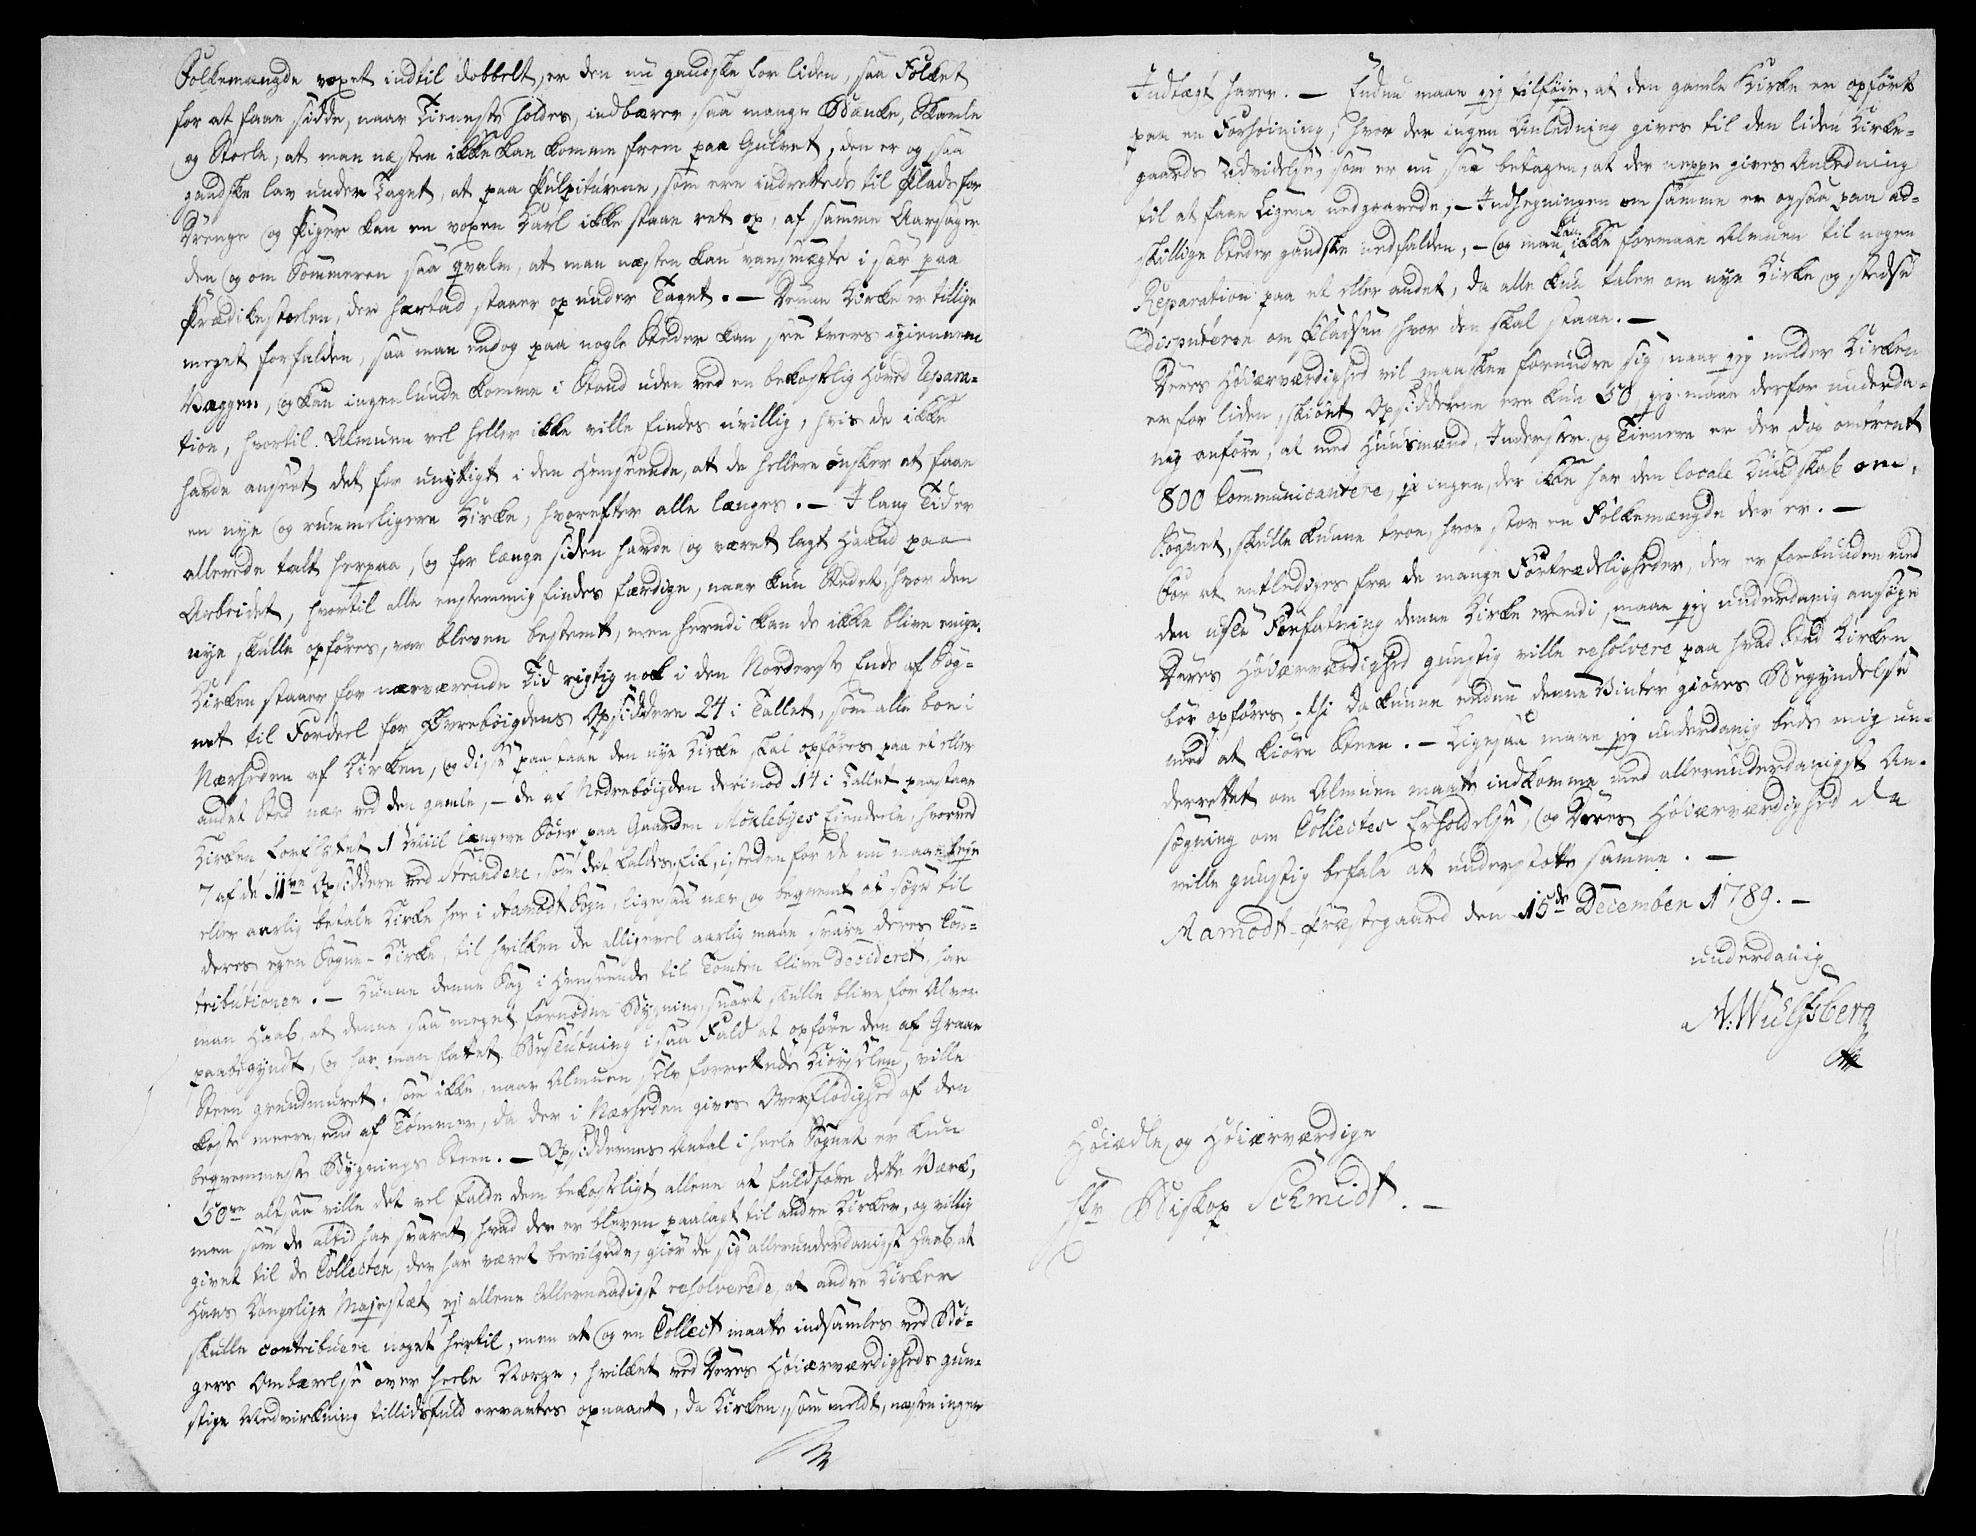 Folkemængde voxet indtil dobbelt, er den nu gandske for liden, saa Folket
for at faae sidde, naar Tieneste holdes, indbærer saa mange Bænke, Skamle
og Stoele, at man næsten ikke kan komme frem paa Gulvet, den er og saa
gandske lav under Taget, at paa Pulpiturene, som ere indrettede til Plads for
Drenge og Piger kan en voxen Karl ikke staae ret op, af samme Aarsag er
den og om Sommeren saa qvalm, at man næsten kan vansmægte i sær paa
Prædikestoelen, der hartad staaer op under Taget. — Denne Kirke er tillige
meget forfalden, saa man endog paa nogle Steder kan see tvers igiennem
Væggen, og kan ingenlunde komme i Stand uden ved en bekostelig Hoved Repara-
tion, hvortil Almuen vel heller ikke ville findes uvillig, hvis de ikke
havde anseet det for unyttigt i den Henseende, at de hellere ønsker at faae
en nye og rummeligere Kirke, hvorefter alle længes. — I lang Tid er
allerede talt herpaa, og for længe siden havde og været lagt Haand paa
Arbeidet, hvortil alle enstemmig findes færdige, naar kun Stedet, hvor den
nye skulle opføres, var bleven bestemt, men herudi kan de ikke blive enige.
Kirken staaer for nærværende Tid rigtig nok i den Norderste Ende af Sog-
net til Fordeel for Øvrebøigdens Opsiddere 24 i Tallet, som alle boe i
Nærheden af Kirken, og disse paastaae den nye Kirke skal opføres paa et eller
andet Sted nær ved den gamle, — de af Nedrebøigden derimod 14 i Tallet paastaae
Kirken forflyttet 1 Miil længere Søer paa Gaarden Möklebyes Eiendeele, hvorved
7 af de 11ve Opsiddere ved Strandene, som det kaldes, fik, isteden for de nu maae
eller aarlig betale Kirke her i Aamodt Sogn, ligesaa nær og beqvemt at søge til
deres egen Sogne-Kirke, til hvilken de alligevel aarlig maae svare deres Con-
tributioner. — Kunne denne Sag i Henseende til Tomten blive decideret, har
man Haab, at denne saa meget fornødne Bygning snart skulle blive for Alvor
paabegyndt, og har man fattet Beslutning i saa Fald at opføre den af Graae
Steen grundmuret, som ikke, naar Almuen selv forrettede Kiørselen, ville
koste meere, end af Tømmer, da der i Nærheden gives Overflødighed af den
beqvemmeste Bygnings Steen. — Opsiddernes Antal i heele Sognet er kun
50ve altsaa ville det vel falde dem bekosteligt allene at fuldføre dette Værk,
men som de altid har svaret hvad der er bleven paalagt til andre Kirker, og villig
givet til de Collecter, der har været bevilgede, giør de sig allerunderdanigst Haab, at
Hans Kongelige Majestæt ej allene Allernaadigst resolverede, at andre Kirker
skulle contribuere noget hertil, men at og en Collect maatte indsamles ved Bø-
gers Ombærelse over heele Norge, hvilket ved Deres Høiærværdigheds gun-
stige Medvirkning tillidsfuld ervartes opnaaet, da Kirken, som meldt, næsten ingen
Indtægt haver. — Endnu maae jeg tilføje, at den gamle Kirke er opført
paa en Forhøining, hvor der ingen Anledning gives til den liden Kirke-
gaards Udvidelse, som er nu saa betagen, at der neppe gives Anledning
til at faae Ligene nedgravede, — Indhegningen om samme er ogsaa paa ad-
skillige Steder gandske nedfalden, — og man kan ikke formaae Almuen til nogen
Reparation paa et eller andet, da alle kun taler om nye Kirke og stedse
disputerer om Pladsen hvor den skal staae. —
Deres Høiærværdighed vil maaskee forundre sig, naar jeg melder Kirken
er for liden, skiønt Opsidderne ere kun 50, jeg maae derfor underda-
nig anføre, at med Huusmænd, Inderster og Tienere er der dog omtrent
800 Communicantere, ja ingen, der ikke har den locale Kundskab om
Sognet, skulle kunne troe, hvor stor en Folkemængde der er. —
For at entlediges fra de mange Fortrædeligheder, der er forbunden med
den usle Forfatning denne Kirke er udi, maae jeg underdanig ansøge
Deres Høiærværdighed gunstig ville resolvere paa hvad Sted Kirken
bør opføres, thi da kunne endnu denne Vinter giøres Begyndelse
med at kiøre Steen. — Ligesaa maae jeg underdanig bede mig un-
derrettet om Almuen maatte indkomme med allerunderdanigst An-
søgning om Collectes Erholdelse, og Deres Høiærværdighed da
ville gunstig befale at understøtte samme. —
Aamodt-Præstegaard den 15de December 1789. —
underdanig
N. Wulfsberg
Høiædle og Høiærværdige
Hr Biskop Schmidt. —